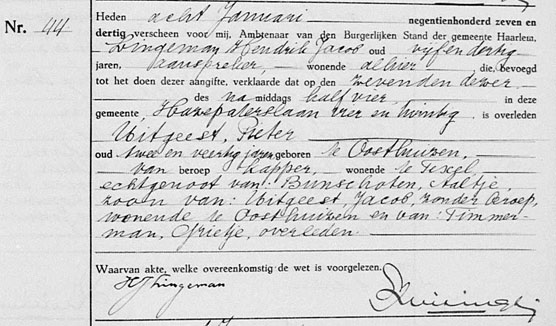 Nr. 44
Heden acht Januari negentienhonderd zeven en
dertig verscheen voor mij, Ambtenaar van den Burgerlijken Stand der gemeente Haarlem,
Lingeman Hendrik Jacob oud vijfendertig
jaren, aanspreker, wonende alhier die, bevoegd
tot het doen dezer aangifte, verklaarde dat op den zevenden dezer
des na middags half vier, in deze
gemeente, Hazepaterslaan vier en twintig is overleden
Uitgeest, Pieter
oud twee en veertig jaren, geboren te Oosthuizen,
van beroep kapper, wonende te Texel,
echtgenoot van: Bunschoten, Aaltje,
zoon van: Uitgeest, Jacob, zonder beroep,
wonende te Oosthuizen en van: Timmer-
man, Grietje, overleden.
Waarvan akte, welke overeenkomstig de wet is voorgelezen.
HJLingeman